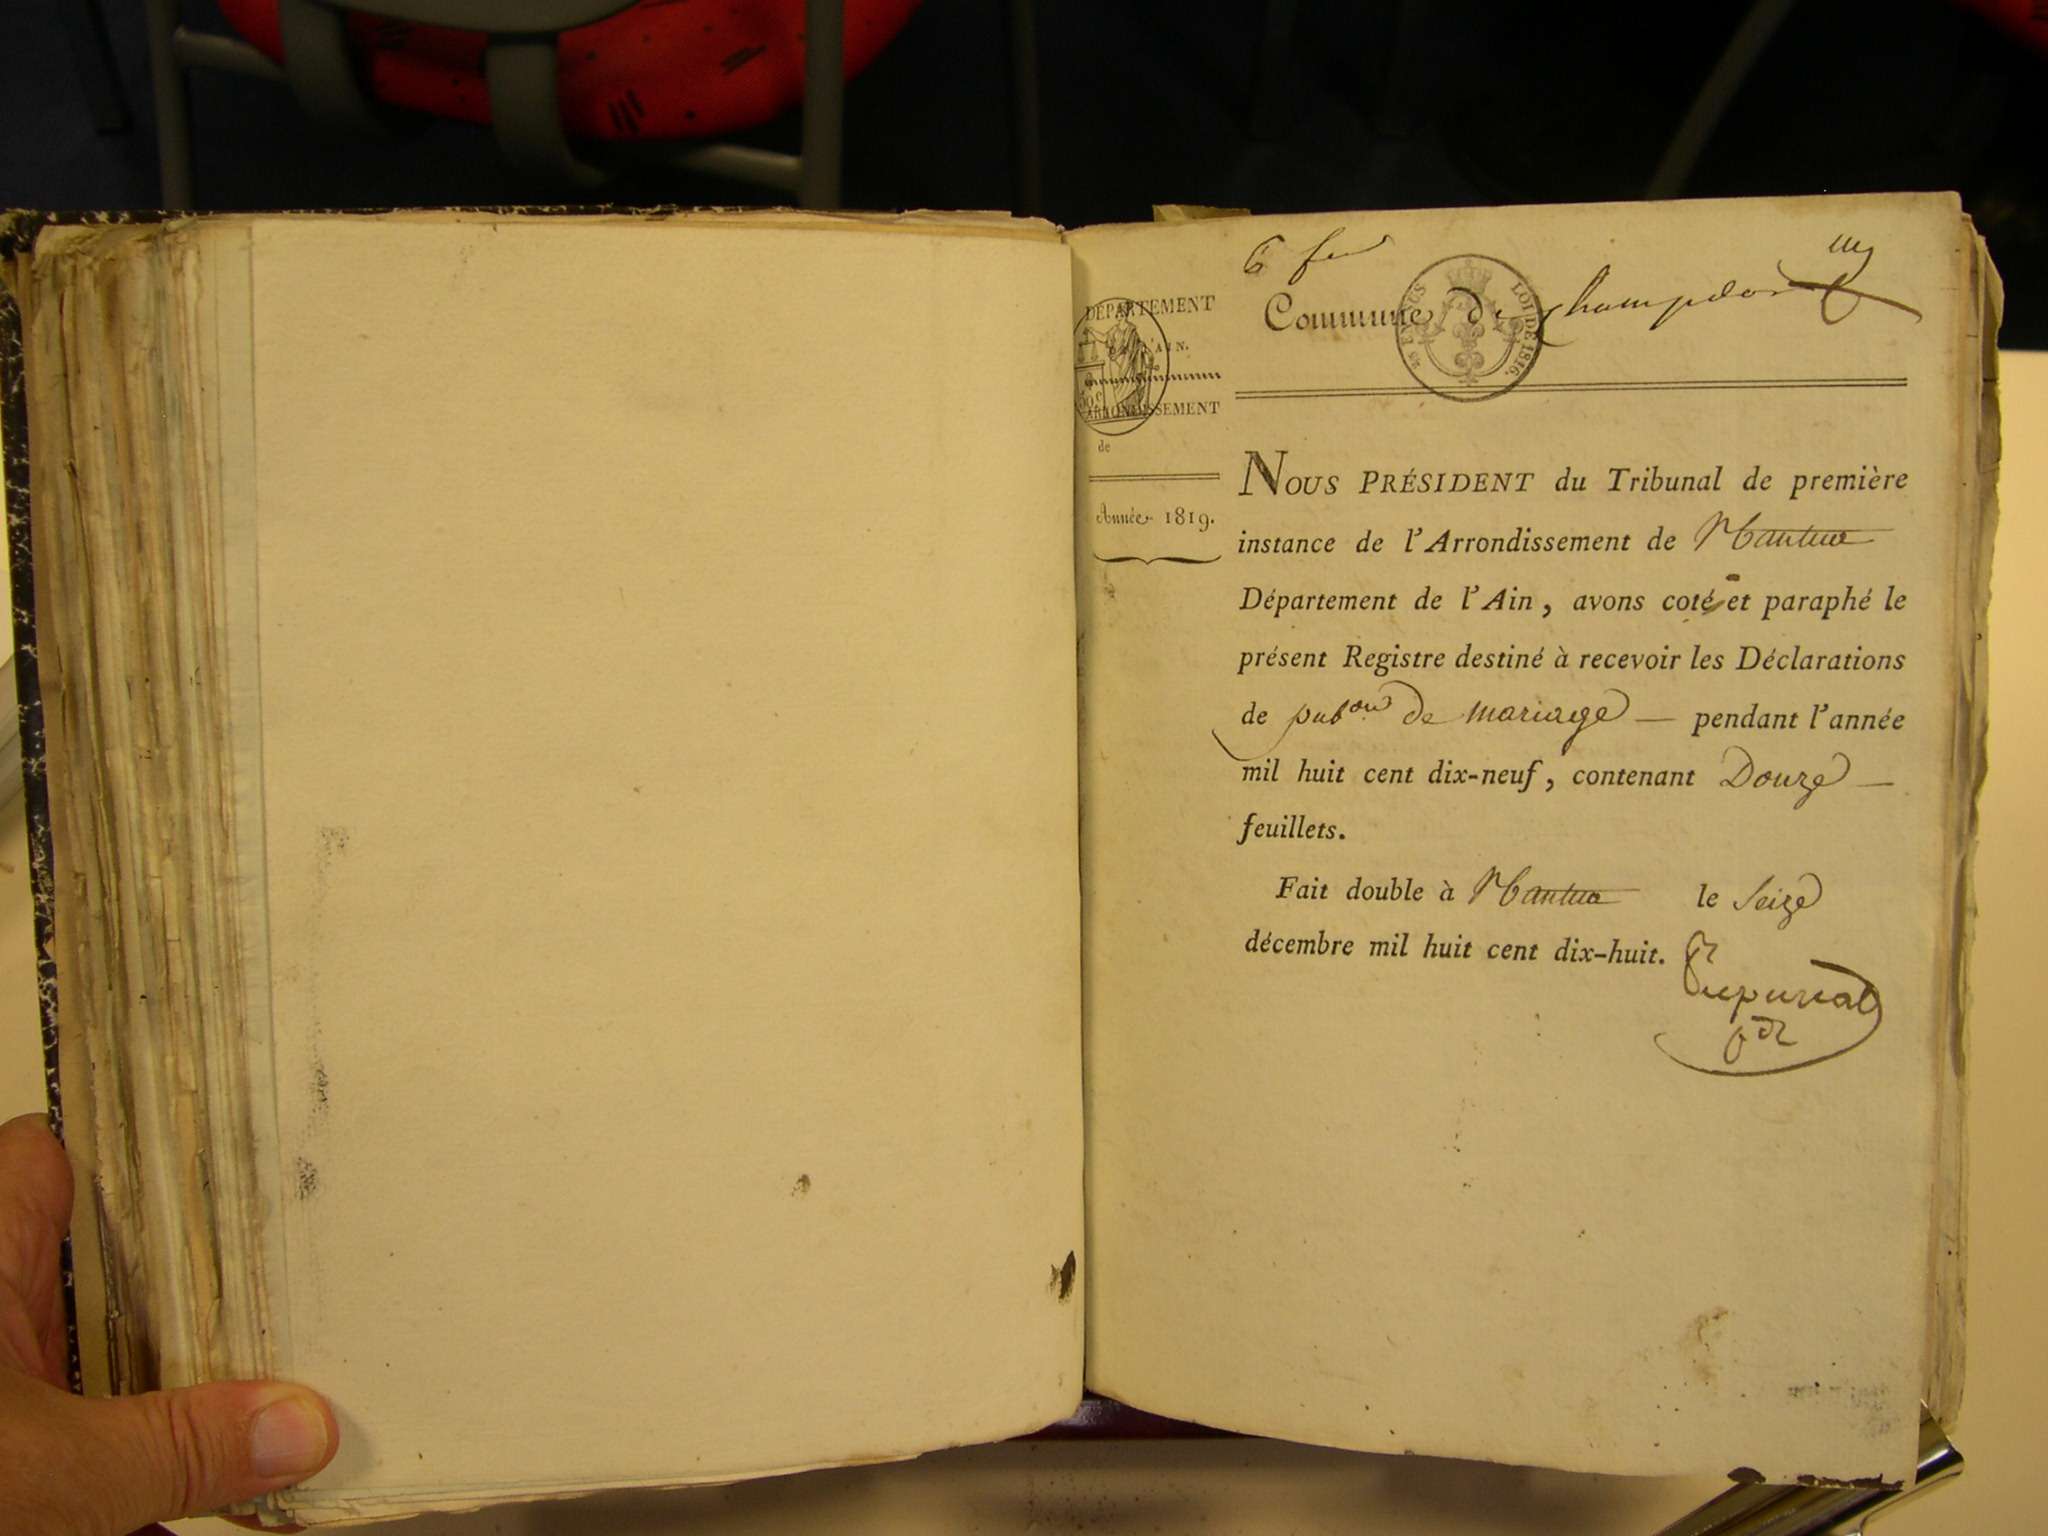 6 feu
Commune de Champdor
25 EN SUS
LOI DE 1816.
DÉPARTEMENT
DE L'AIN.
50 c
ARRONDISSEMENT
de
Année 1819.
NOUS PRÉSIDENT du Tribunal de première
instance de l'Arrondissement de Nantua
Département de l'Ain, avons coté et paraphé le
présent Registre destiné à recevoir les Déclarations
de pub.on de mariage — pendant l'année
mil huit cent dix-neuf, contenant Douze —
feuillets.
Fait double à Nantua le Seize
décembre mil huit cent dix-huit.